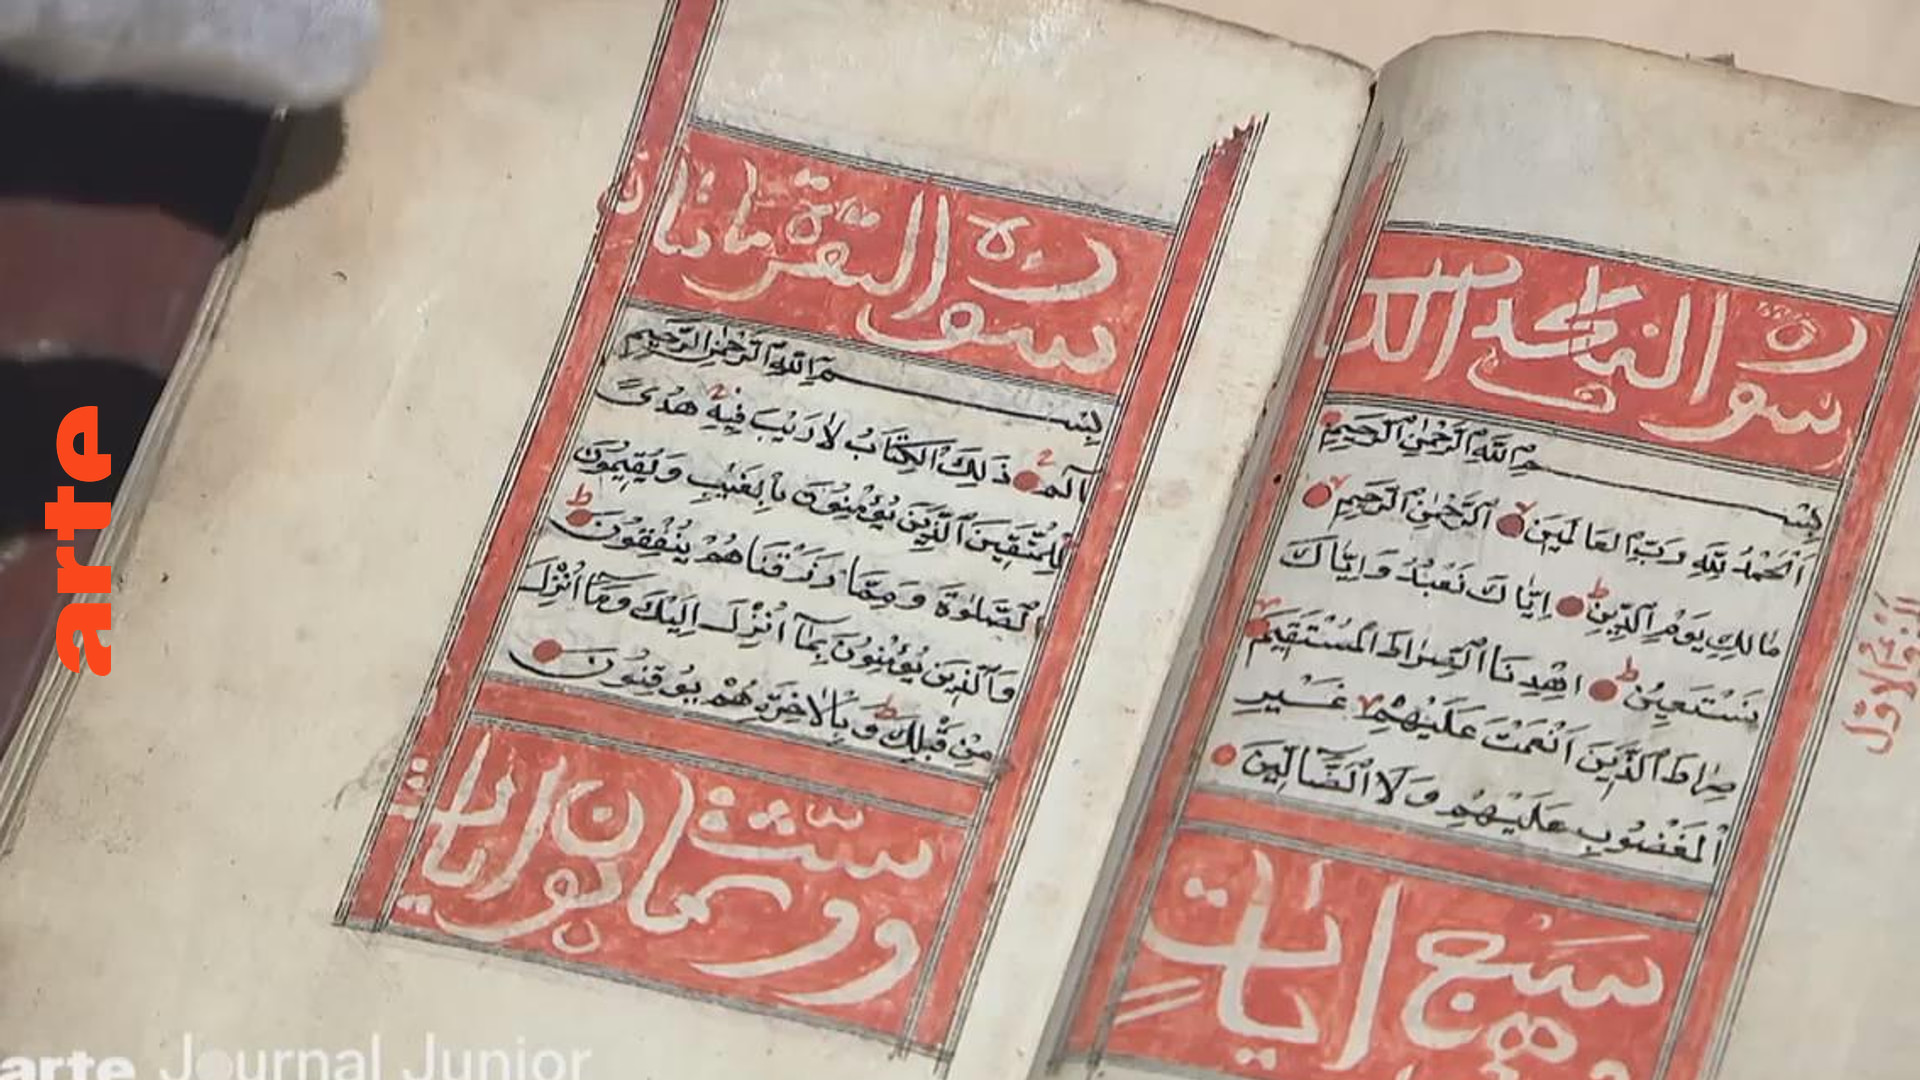 بِسْمِ اللّٰهِ الرَّحْمٰنِ الرَّحِيمِ
اَلْحَمْدُ لِلّٰهِ رَبِّ الْعَالَمِينَ الرَّحْمٰنِ الرَّحِيمِ
مَالِكِ يَوْمِ الدِّينِ اِيَّاكَ نَعْبُدُ وَاِيَّاكَ
نَسْتَعِينُ اهْدِنَا الصِّرَاطَ الْمُسْتَقِيمَ
صِرَاطَ الَّذِينَ اَنْعَمْتَ عَلَيْهِمْ غَيْرِ
الْمَغْضُوبِ عَلَيْهِمْ وَلَا الضَّالِّينَ
اٰيات
سورة البقرة مائتان
بِسْمِ اللّٰهِ الرَّحْمٰنِ الرَّحِيمِ
آلم ذَلِكَ الْكِتَابُ لَا رَيْبَ فِيهِ هُدًى
لِلْمُتَّقِينَ الَّذِينَ يُؤْمِنُونَ بِالْغَيْبِ وَيُقِيمُونَ
الصَّلٰوةَ وَمِمَّا رَزَقْنَاهُمْ يُنْفِقُونَ
وَالَّذِينَ يُؤْمِنُونَ بِمَآ اُنْزِلَ اِلَيْكَ وَمَآ اُنْزِلَ
مِنْ قَبْلِكَ وَبِالْاٰخِرَةِ هُمْ يُوقِنُونَ
arte
arte Journal Junior